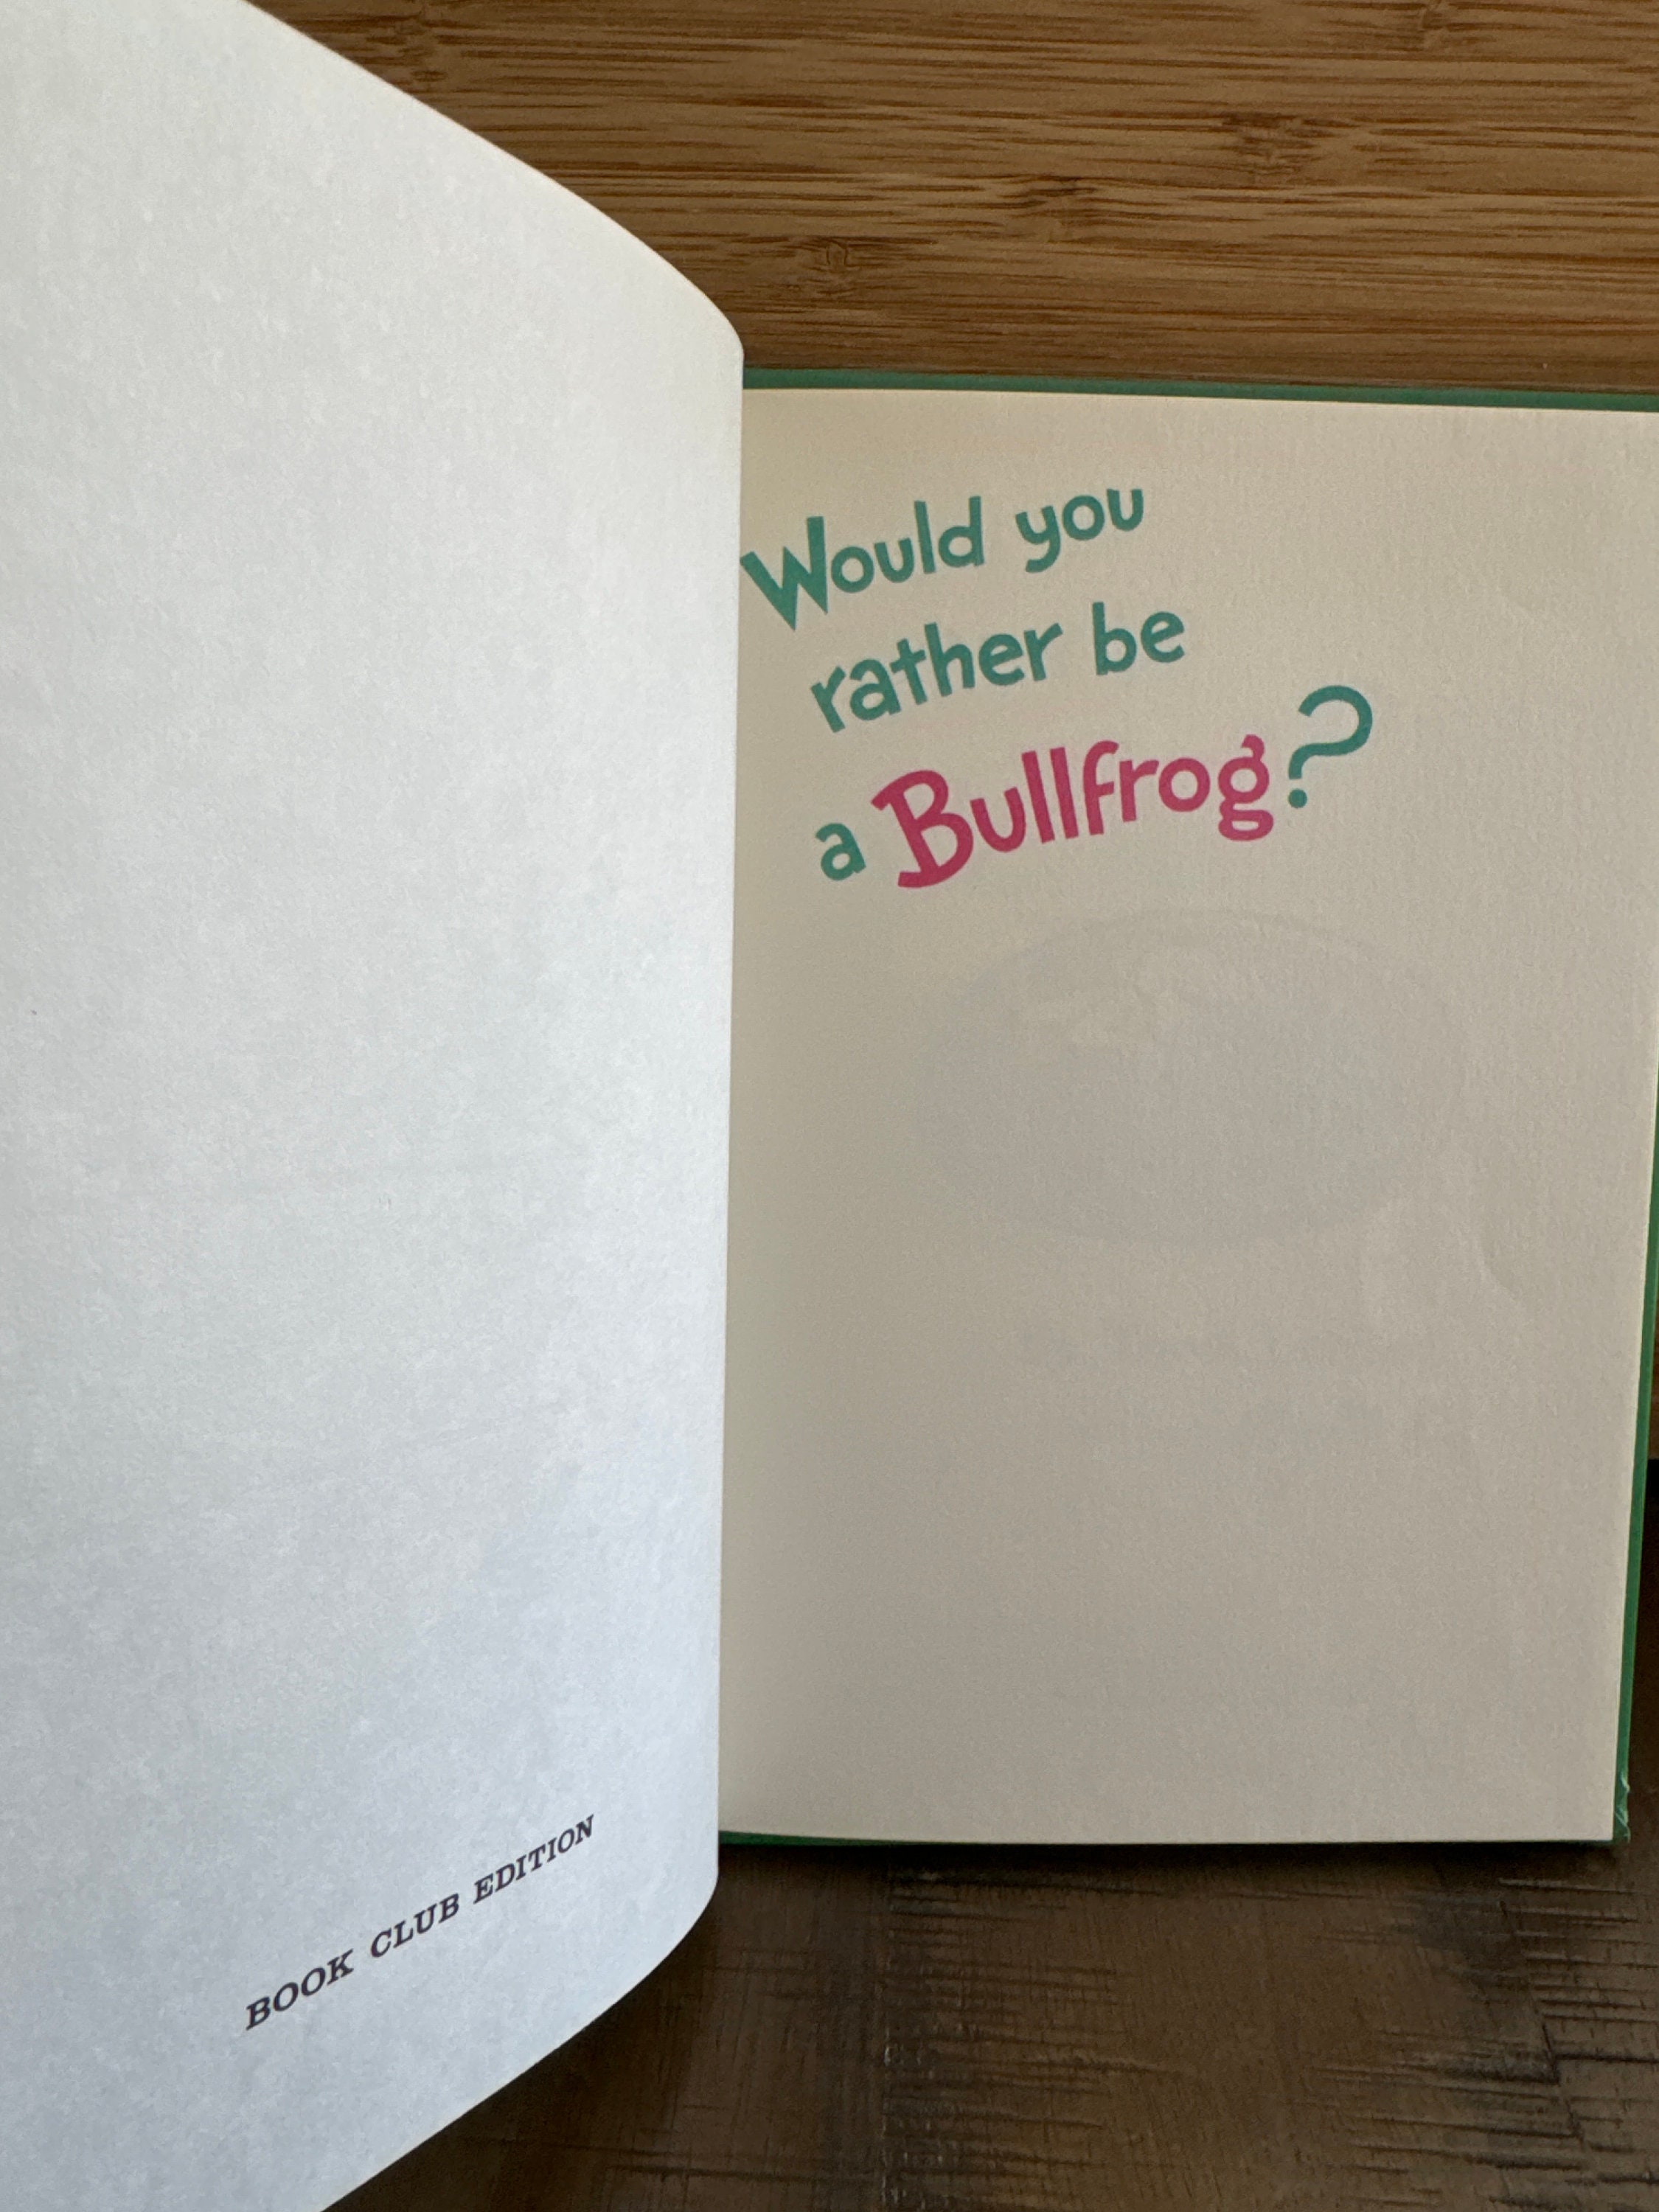 BOOK CLUB EDITION
Would you
rather be
a Bullfrog?